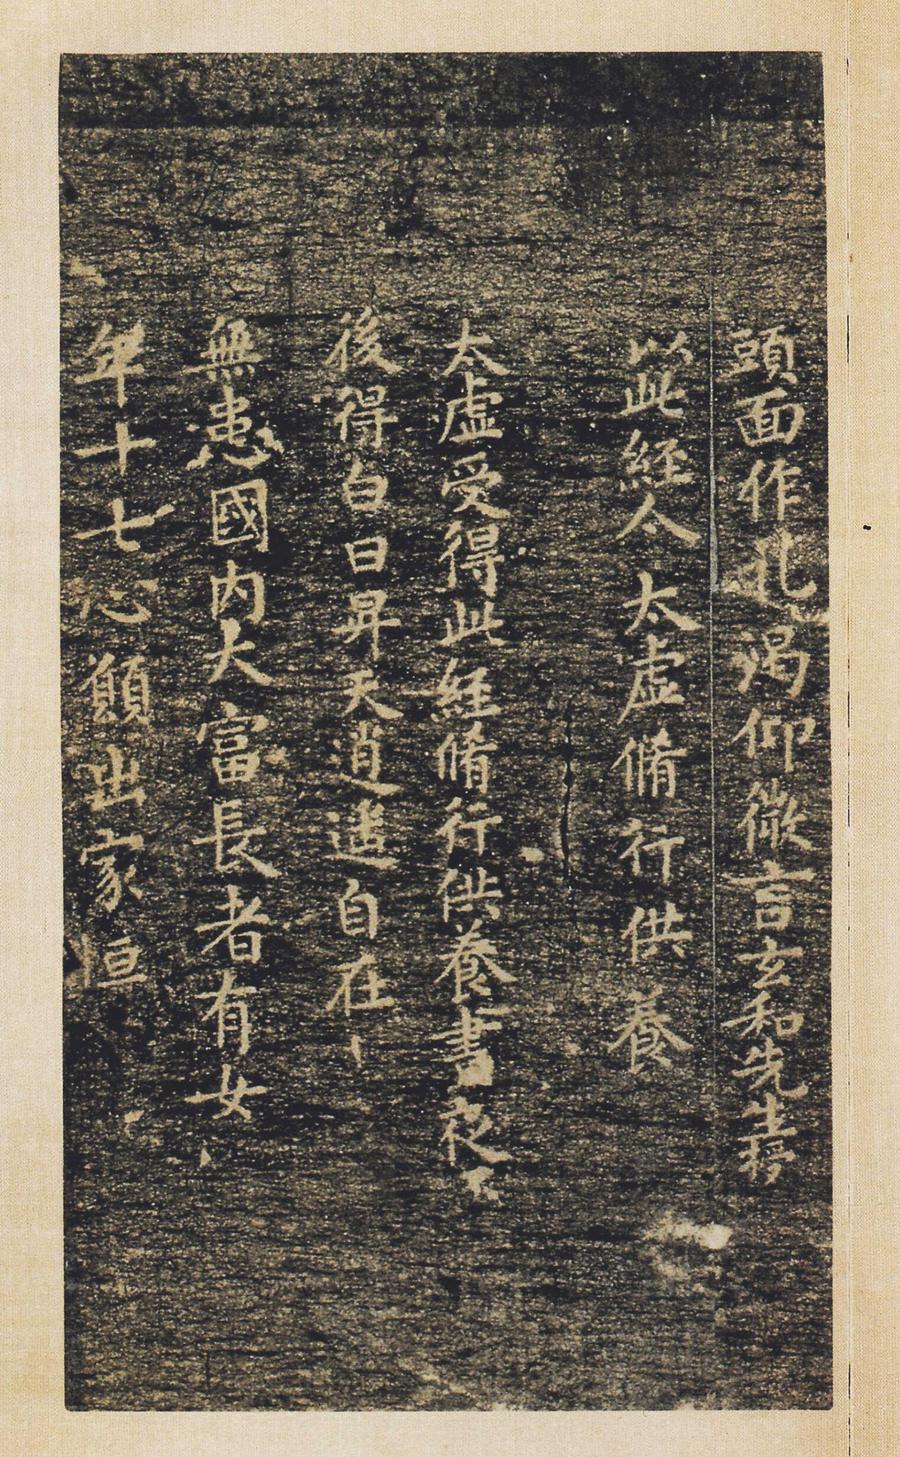 頭面作礼渴仰微言玄和先生稽
以此經令太虛脩行供養
太虛受得此經脩行供養書夜不
後得白日昇天逍遥自在
無恚國內大富長者有女
年十七心願出家亘